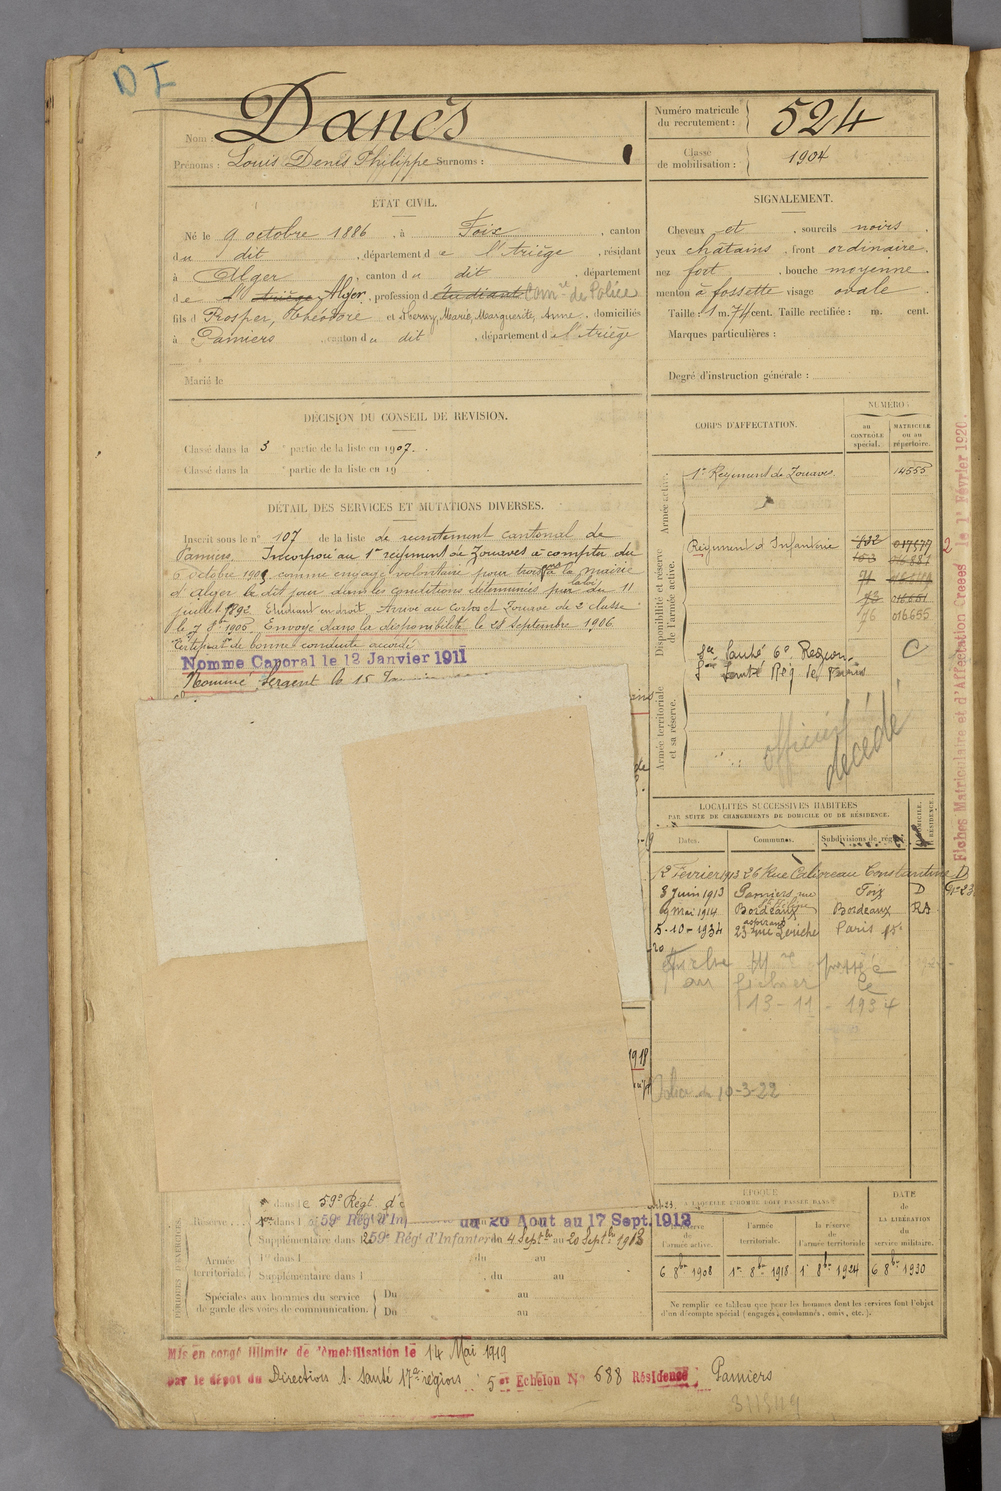 D I
Nom : Danès
Prénoms : Louis Denis Philippe Surnoms :
Numéro matricule du recrutement : 524
Classe de mobilisation : 1904
ÉTAT CIVIL.
Né le 9 octobre 1886, à Foix, canton
du dit, département de l'Ariège, résidant
à Alger, canton du dit, département
de l'Ariège Alger, profession d étudiant Com re de Police
fils d Prosper, Théodore et d'Hermy, Marie, Marguerite, Anne, domiciliés
à Pamiers, canton du dit, département de l'Ariège
Marié le
SIGNALEMENT.
Cheveux et, sourcils noirs
yeux châtains, front ordinaire,
nez fort, bouche moyenne,
menton à fossette visage ovale
Taille : 1 m. 74 cent. Taille rectifiée : m. cent.
Marques particulières :
Degré d'instruction générale :
DÉCISION DU CONSEIL DE REVISION.
Classé dans la 3 e partie de la liste en 1907.
Classé dans la e partie de la liste en 19
DÉTAIL DES SERVICES ET MUTATIONS DIVERSES.
Inscrit sous le n° 107 de la liste de recrutement cantonal de
Pamiers. Incorporé au 1er régiment de Zouaves à compter du
6 octobre 1905 comme engagé volontaire pour trois ans à la mairie
d'Alger le dit jour dans les conditions déterminées par la loi du 11
juillet 1892 Etudiant en droit. Arrivé au corps et Zouave de 2e classe
le 7 8bre 1905. Envoyé dans la disponibilité le 28 Septembre 1906.
Certificat de bonne conduite accordé
Nommé Caporal le 12 Janvier 1911
Nommé Sergent le 15
CORPS D'AFFECTATION.
NUMÉRO :
au CONTRÔLE spécial.
MATRICULE ou au répertoire.
Armée active.
1er Régiment de Zouaves
14555
Disponibilité et réserve de l'armée active.
Régiment d'Infanterie
016655
Santé 6e Région
C
Armée territoriale et sa réserve.
officier
décédé
Fiches Matriculaire et d'Affectation Créées le 1er Février 1920.
LOCALITÉS SUCCESSIVES HABITÉES
PAR SUITE DE CHANGEMENTS DE DOMICILE OU DE RÉSIDENCE.
Dates. Communes. Subdivisions de région.
DOMICILE. RÉSIDENCE.
Février 1913 26 Rue Constantine D
8 Juin 1913 Pamiers Foix D
9 Mai 1914 Bordeaux Bordeaux RA
5-10-1934 23 rue Leriche Paris 15e
au fichier le
13-11-1934
10-3-22
1918
Réserve
dans le 59e Régt d'
dans l 59e Régt d'In du 20 Aout au 17 Sept. 1912
Supplémentaire dans l 259e Régt d'Infanterie du 4 Septbre au 20 Septbre 1913
Armée territoriale
1re dans l du au
Supplémentaire dans l, du au
Spéciales aux hommes du service de garde des voies de communication.
Du au
Du au
PÉRIODES D'EXERCICES.
ÉPOQUE
À LAQUELLE L'HOMME DOIT PASSER DANS
la réserve de l'armée active. l'armée territoriale. la réserve de l'armée territoriale
DATE de LA LIBÉRATION du service militaire.
6 8bre 1908 1er 8bre 1918 1er 8bre 1924 6 8bre 1930
Ne remplir ce tableau que pour les hommes dont les services font l'objet
d'un décompte spécial (engagés, condamnés, omis, etc.).
Mis en congé illimité de démobilisation le 14 Mai 1919
par le dépôt du Direction S. Santé 17e région 5 e Echelon No 688 Résidence Pamiers
311349